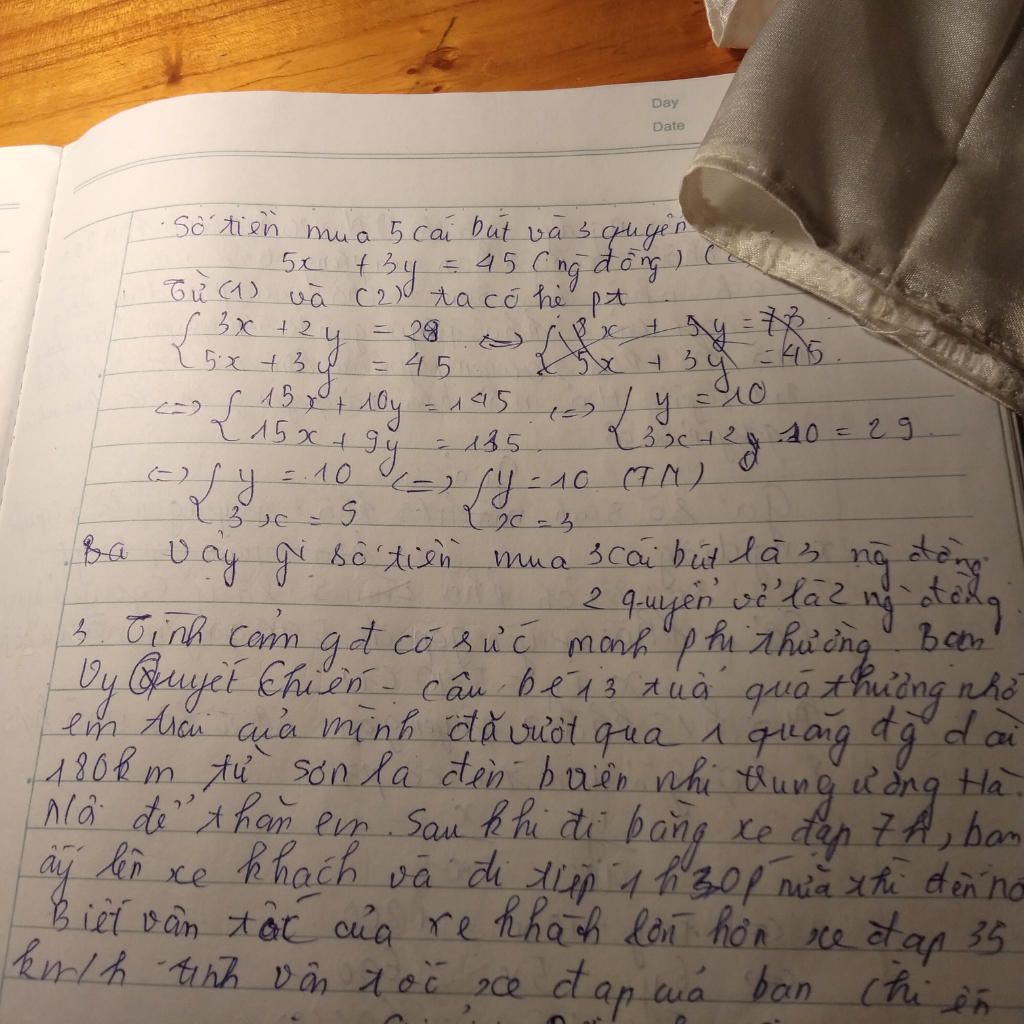 Day
Date
Số tiền mua 5 cái bút và 3 quyển
5x + 3y = 45 (ng đồng) (
Từ (1) và (2) ta có hệ pt
{ 3x + 2y = 29 <=> { 8x + 5y = 73
{ 5x + 3y = 45 { 5x + 3y = 45.
<=> { 15x + 10y = 145 <=> { y = 10
{ 15x + 9y = 135 { 3x + 2y 10 = 29.
<=> { y = 10 <=> { y = 10 (TM)
{ 3x = 9 { x = 3
vậy gi số tiền mua 3 cái bút là 3 ng đồng
2 quyển vở là 2 ng đồng.
3. Tình cảm gđ có sức mạnh phi thường. Bạn
Vy Quyết Chiến - cậu bé 13 tuổi quá thương nhớ
em trai của mình đã vượt qua 1 quãng đg dài
180km từ sơn la đến bviện nhi trung ương Hà
Nội để thăm em. Sau khi đi bằng xe đạp 7h, bạn
ấy lên xe khách và đi tiếp 1h30p nữa thì đến nơ
Biết vận tốc của xe khách lớn hơn xe đạp 35
km/h tính vận tốc xe đạp của bạn chiến